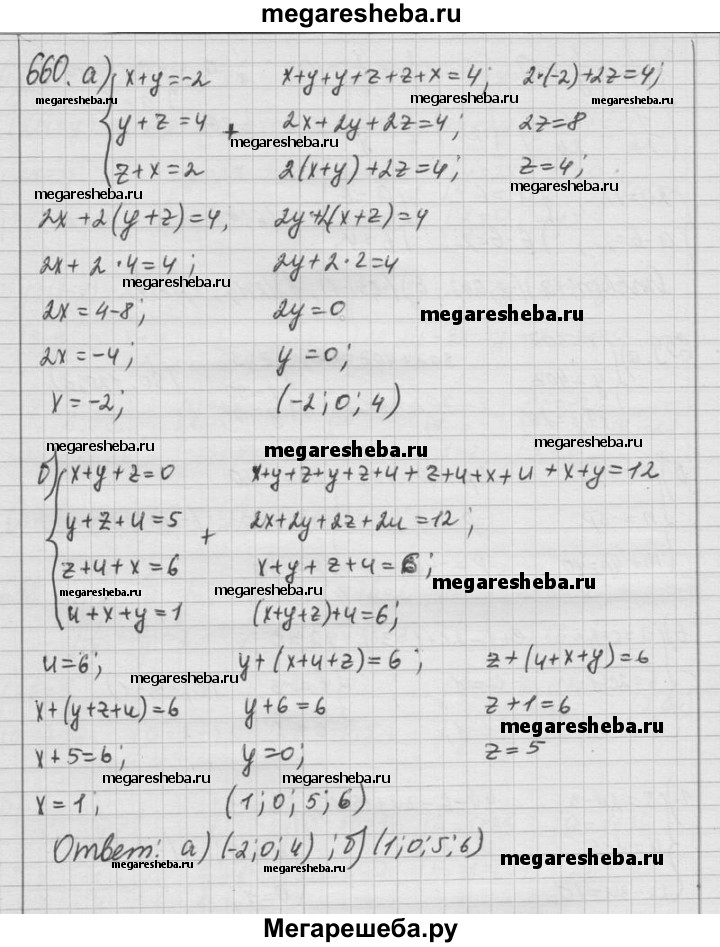 megaresheba.ru
660. а) x+y=-2 x+y+y+z+z+x=4; 2·(-2)+2z=4;
megaresheba.ru megaresheba.ru megaresheba.ru
y+z=4 + 2x+2y+2z=4; 2z=8
megaresheba.ru
z+x=2 2(x+y)+2z=4; z=4;
megaresheba.ru megaresheba.ru
2x+2(y+z)=4, 2y+2(x+z)=4
2x+2·4=4; 2y+2·2=4
megaresheba.ru
2x=4-8; 2y=0 megaresheba.ru
2x=-4; y=0;
x=-2; (-2; 0; 4)
megaresheba.ru megaresheba.ru megaresheba.ru
б) x+y+z=0 x+y+z+y+z+u+z+u+x+u+x+y=12
y+z+u=5 + 2x+2y+2z+2u=12;
z+u+x=6 x+y+z+u=6;
megaresheba.ru megaresheba.ru megaresheba.ru
u+x+y=1 (x+y+z)+u=6;
u=6; y+(x+u+z)=6; z+(u+x+y)=6
megaresheba.ru
x+(y+z+u)=6 y+6=6 z+1=6
megaresheba.ru
x+5=6; y=0; z=5
megaresheba.ru megaresheba.ru
x=1; (1; 0; 5; 6)
Ответ: а) (-2; 0; 4); б) (1; 0; 5; 6)
megaresheba.ru megaresheba.ru megaresheba.ru
Мегарешеба.ру